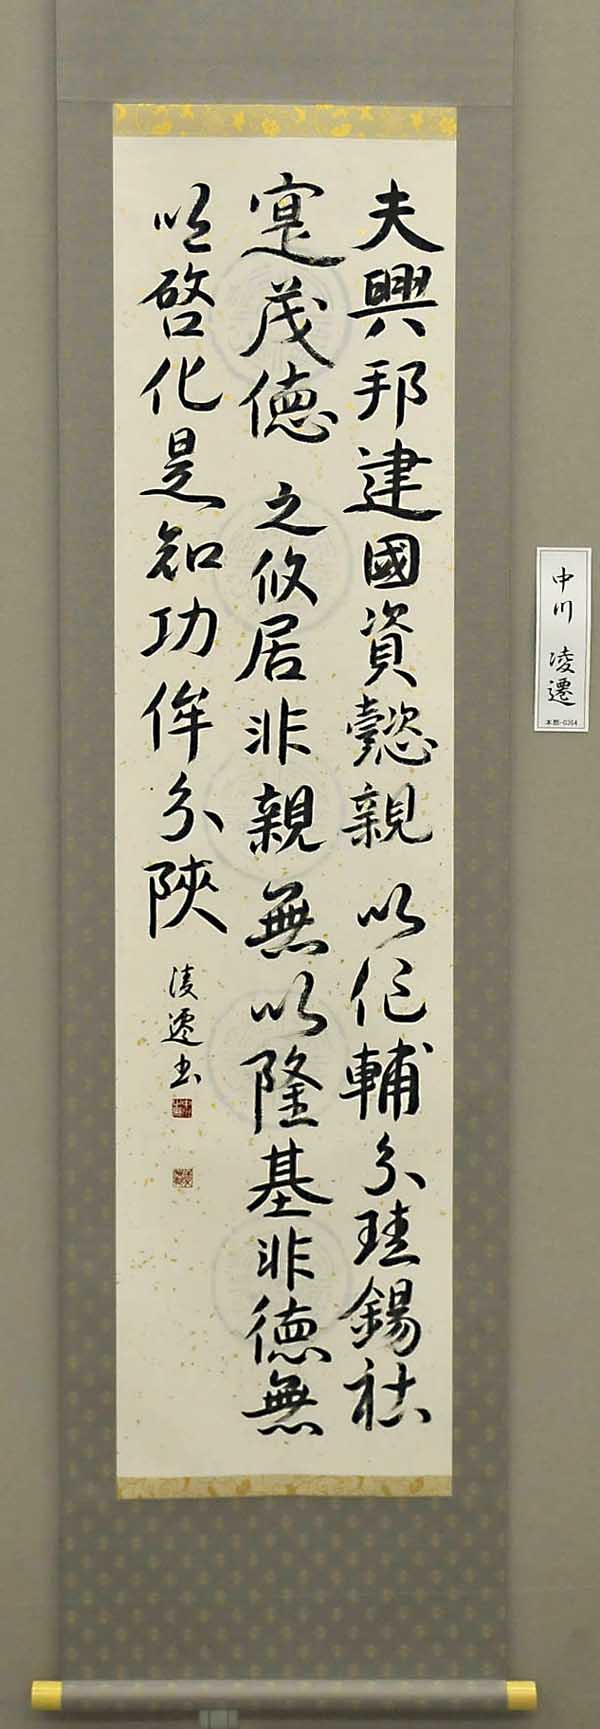 夫興邦建國資懿親以作輔分珪錫社
寔茂德之攸居非親無以隆基非德無
以啓化是知功侔分陝
凌遷书
中川 凌遷
本部-0364